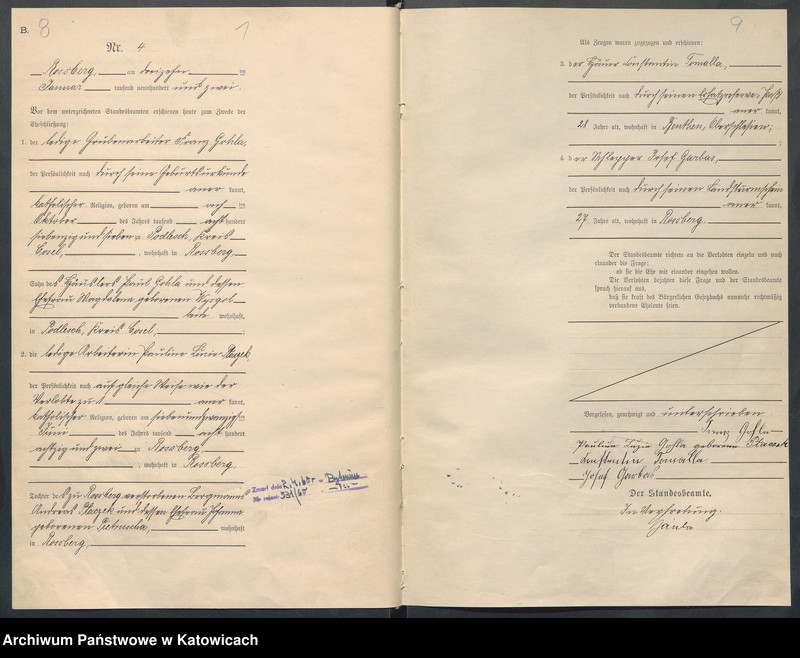 B. 8
1
Nr. 4
Rossberg, am dreizehn ten
Januar tausend neunhundert und zwei.
Vor dem unterzeichneten Standesbeamten erschienen heute zum Zwecke der
Eheschließung:
1. der ledige Grubenarbeiter Franz Gohla,
der Persönlichkeit nach durch seine Geburtsurkunde
aner kannt,
katholischer Religion, geboren am ach ten
Oktober des Jahres tausend acht hundert
siebenzig und sieben zu Podlesch, Kreis
Cosel, , wohnhaft in Rossberg,
Sohn des Häuslers Paul Gohla und dessen
Ehefrau Magdalena geborenen
beide wohnhaft
in Podlesch, Kreis Cosel;
2. die ledige Arbeiterin Pauline Luzie Placzek
der Persönlichkeit nach auf gleiche Weise wie der
Verlobte zu 1 aner kannt,
katholischer Religion, geboren am siebenundzwanzigsten
Juni des Jahres tausend acht hundert
achtzig und zwei zu Rossberg
, wohnhaft in Rossberg,
Tochter des zu Rossberg verstorbenen Bergmanns
Andreas Placzek und dessen Ehefrau Johanna
geborenen wohnhaft
in Rossberg,
Zmarł dnia
Nr. 531/65
9
Als Zeugen waren zugezogen und erschienen:
3. der Häuer Constantin Tomalla,
der Persönlichkeit nach durch seinen Ersatzreserve-Paß
aner kannt,
28 Jahre alt, wohnhaft in Beuthen, Oberschlesien;
4. der Schlepper Josef Garbas,
der Persönlichkeit nach durch seinen Landsturmschein
aner kannt,
27 Jahre alt, wohnhaft in Rossberg.
Der Standesbeamte richtete an die Verlobten einzeln und nach
einander die Frage:
ob sie die Ehe mit einander eingehen wollen.
Die Verlobten bejahten diese Frage und der Standesbeamte
sprach hierauf aus,
daß sie kraft des Bürgerlichen Gesetzbuchs nunmehr rechtmäßig
verbundene Eheleute seien.
Vorgelesen, genehmigt und unterschrieben
Franz Gohla
Pauline Luzie Gohla geborene Placzek
Konstantin Tomalla
Josef Garbas
Der Standesbeamte.
In Vertretung.
Archiwum Państwowe w Katowicach